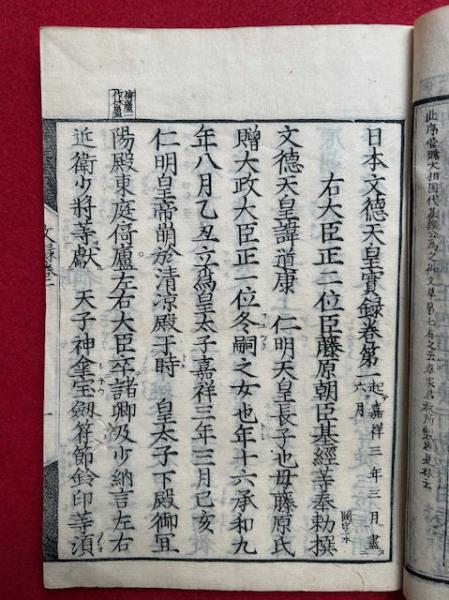 此序當時大相国代
日本文德天皇實録卷第一 起嘉祥三年三月盡六月
右大臣正二位臣藤原朝臣基經等奉勅撰
文德天皇諱道康 仁明天皇長子也母藤原氏
贈太政大臣正一位冬嗣之女也年十六承和九
年八月乙丑立爲皇太子嘉祥三年三月己亥
仁明皇帝崩於清涼殿于時 皇太子下殿御宜
陽殿東庭倚廬左右大臣率諸卿及少納言左右
近衛少將等獻 天子神璽宝劔符節鈴印等須